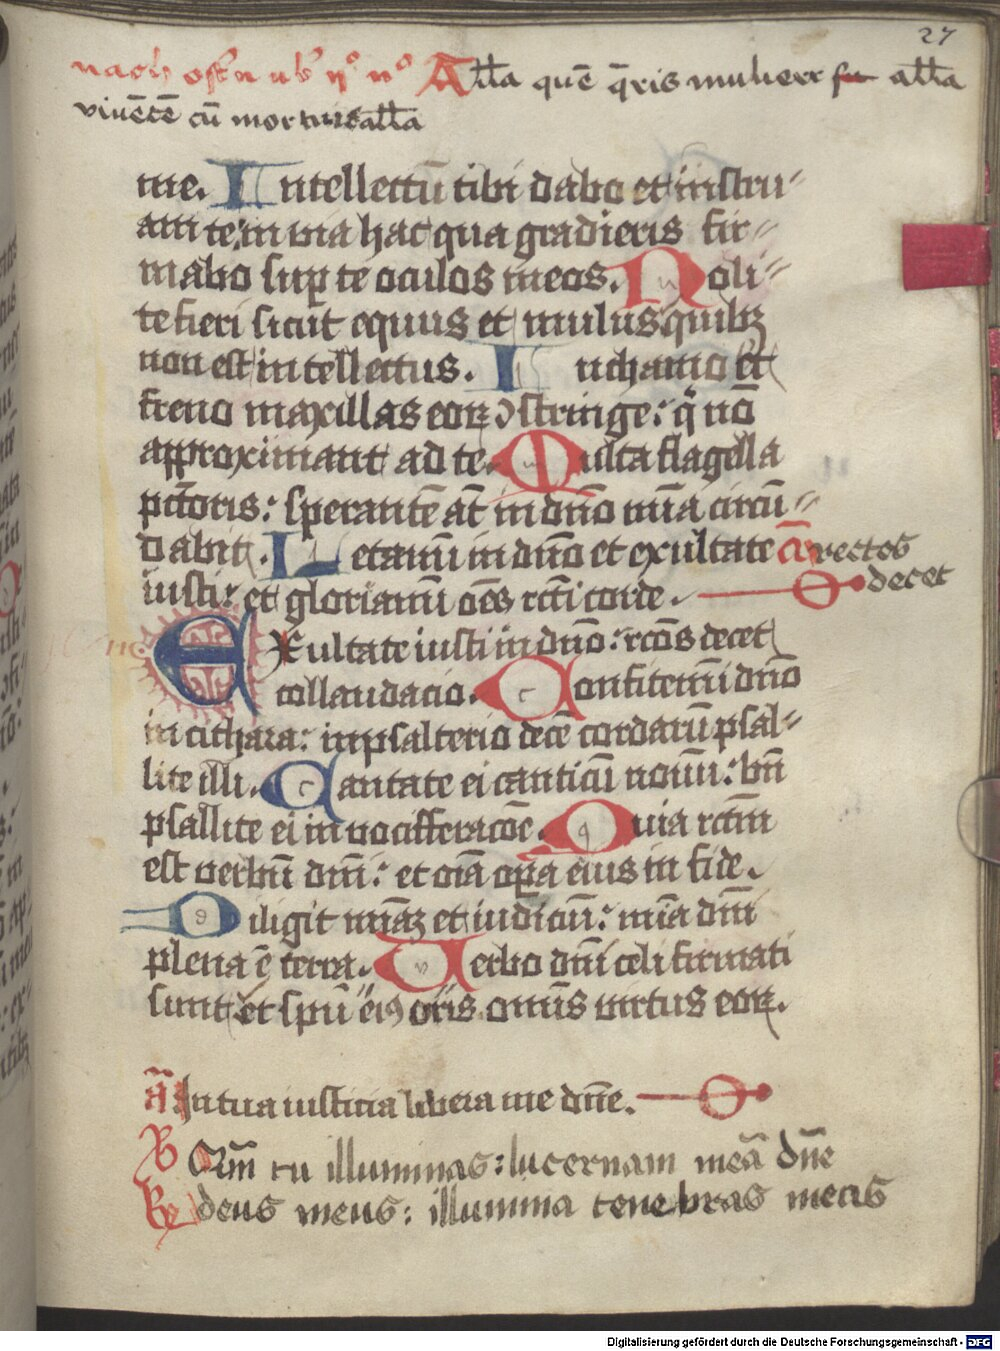 27
nach ostn̄ ub̾ ii° n° All̄a quē q̄ris mulierē all̄a
viuētē cū mortuis all̄a
me. Intellectū tibi dabo et instru⸗
am te: in via hac qua gradieris fir⸗
mabo sup te oculos meos. Noli⸗
te fieri sicut equus et mulus quibꝫ
non est intellectus. In chamo et
freno maxillas eoꝝ ↄstringe: q̄ nō
approximant ad te. Multa flagella
pctōris: sperantē at̄ in dn̄o mīa circū⸗
dabit. Letamī in dn̄o et exultate
iusti: et gloriamī oēs rcti corde.
ā rectos
decet
Exultate iusti in dn̄o: rcōs decet
collaudacio. Confitemī dn̄o
in cithara: in psalterio decē cordarū psal⸗
lite illi. Cantate ei canticū nouū: bn̄
psallite ei in vociferacōe. Quia rctm̄
est verbū dm̄: et oīa opa eius in fide.
Diligit mīaꝫ et iudiciū: mīa dm̄
plena ē terra. Verbo dm̄ celi firmati
sunt et spū eiꝯ oris omīs virtus eoꝝ.
ā In tua iusticia libera me dn̄e.
V Qm̄ tu illuminas: lucernam meā dn̄e
R deus meus: illumina tenebras meas
Digitalisierung gefördert durch die Deutsche Forschungsgemeinschaft - DFG